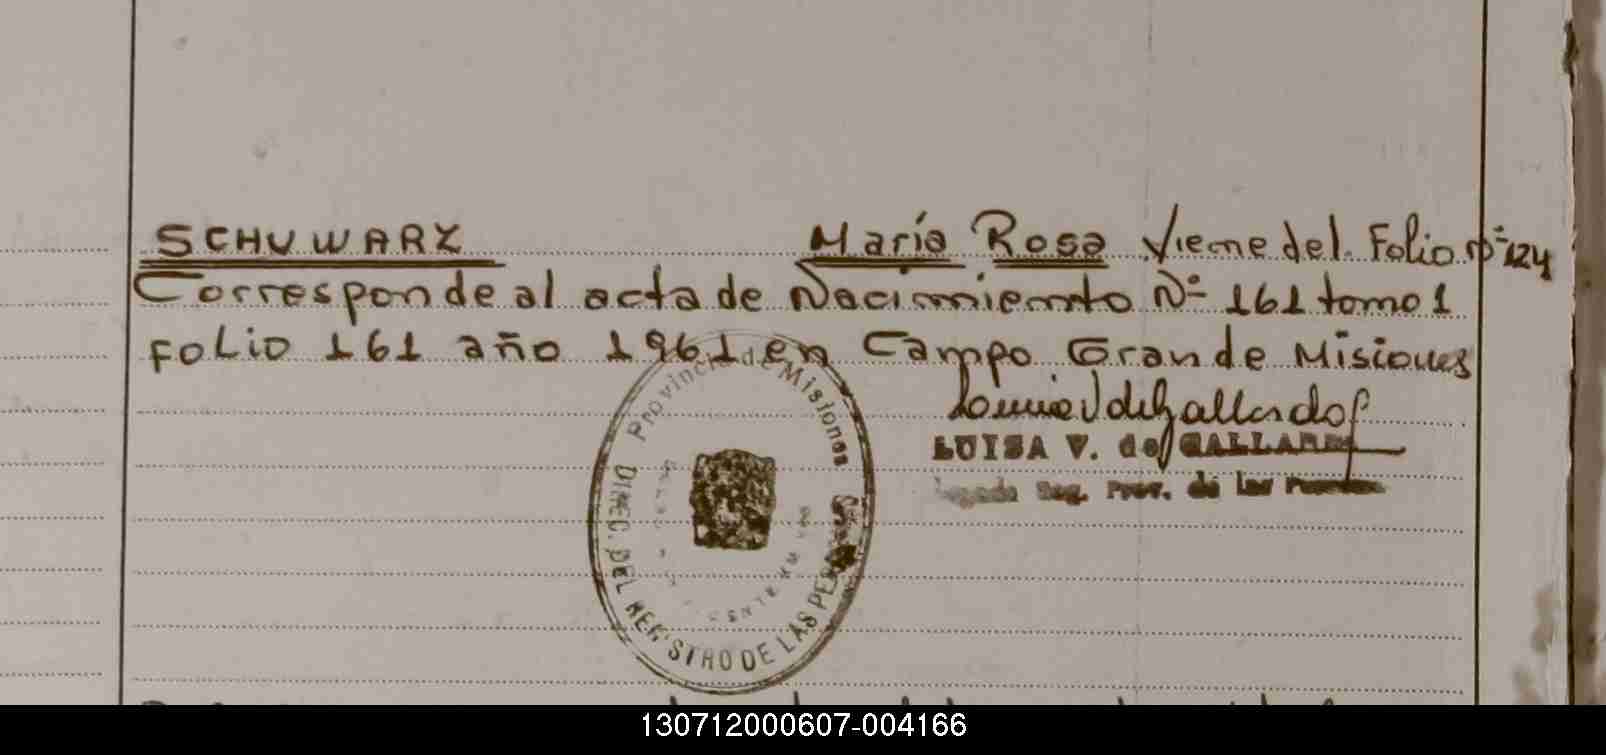 SCHUWARZ María Rosa Viene del Folio Nº 124
Corresponde al acta de Nacimiento Nº 161 tomo 1
Folio 161 año 1961 en Campo Grande Misiones
Luisa V de Gallardo
LUISA V. de GALLARDO
Reg. Prov. de las Personas
Provincia de Misiones
DIREC. DEL REGISTRO DE LAS PERSONAS
130712000607-004166